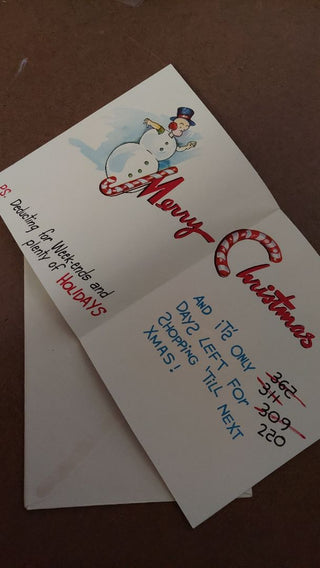 Merry Christmas
AND iT'S ONLY 362
DAYS LEFT FOR 311
SHOPPING 'TILL NEXT 309
XMAS! 220
PS. Deducting for Week-ends and
plenty of HOLIDAYS